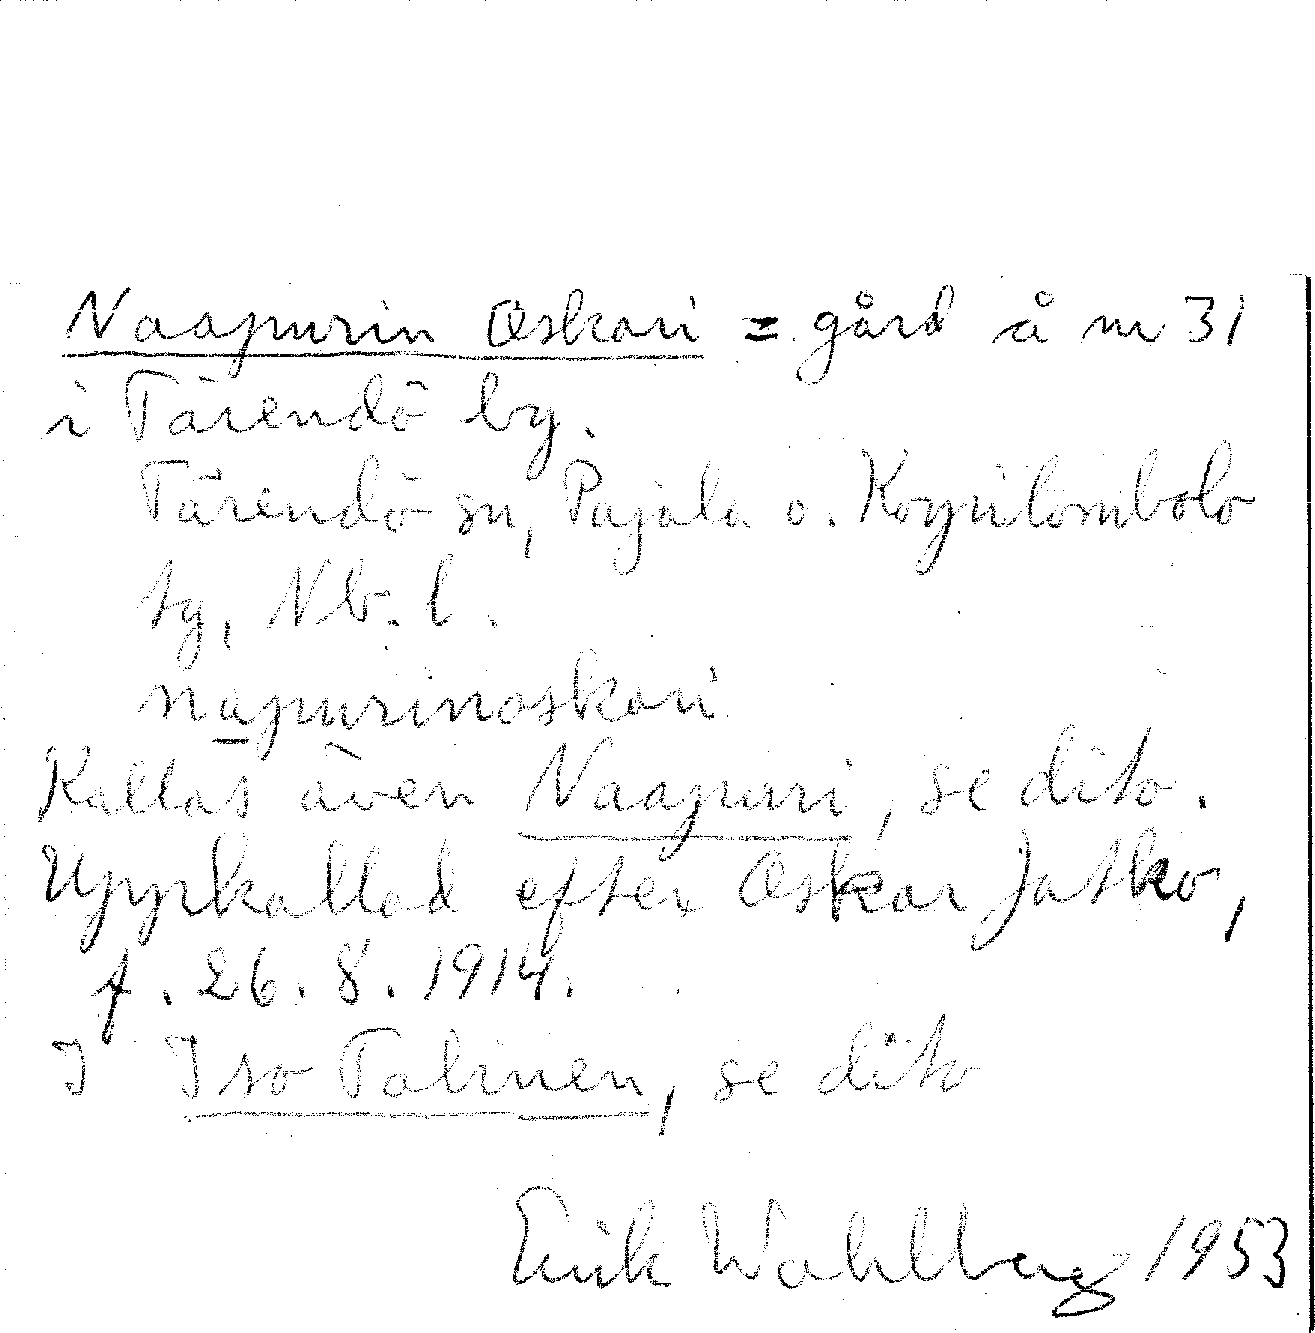 Naapurin Oskari = gård å nr 31
i Tärendö by.
Tärendö sn, Pajala o. Korpilombolo
tg, Nb. l.
napurinoskari
Kallas även Naapuri, se dito.
Uppkallad efter Oskar Jatko,
f. 26. 8. 1914.
I Iso Talinen, se dito
Erik Wahlberg 1953